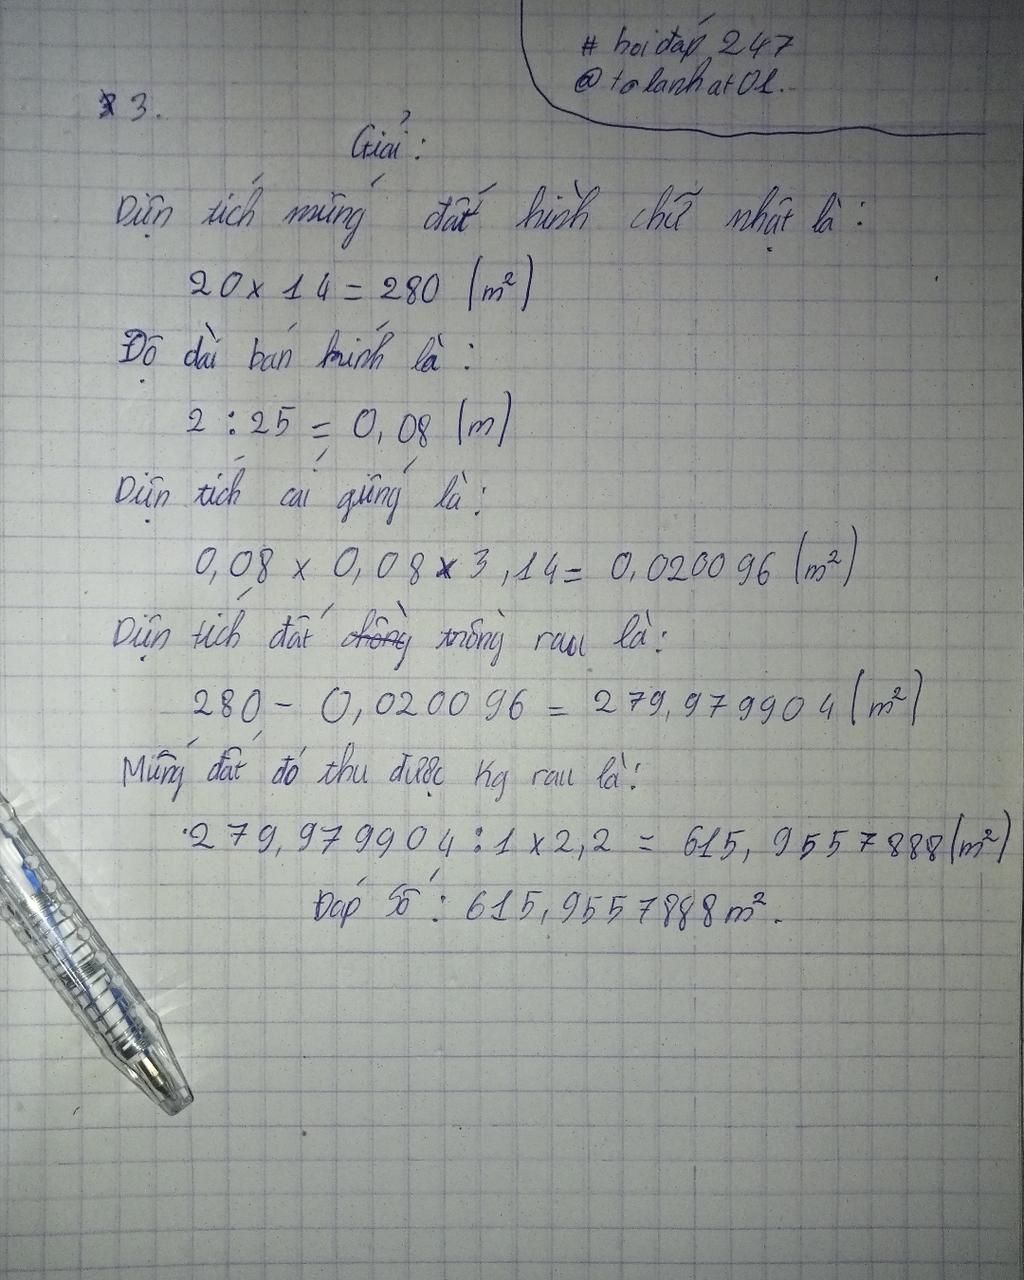 # hoi đáp 247
@tolanhat01.
3.
Giải:
Diện tích mếng đất hình chữ nhật là:
20 x 14 = 280 (m²)
Độ dài bán kính là:
2 : 25 = 0,08 (m)
Diện tích cái giếng là:
0,08 x 0,08 x 3,14 = 0,020096 (m²)
Diện tích đất chồng trồng rau là:
280 - 0,020096 = 279,979904 (m²)
Mếng đất đó thu được Kg rau là:
279,979904 : 1 x 2,2 = 615,9557888 (m²)
Đáp Số : 615,9557888 m².